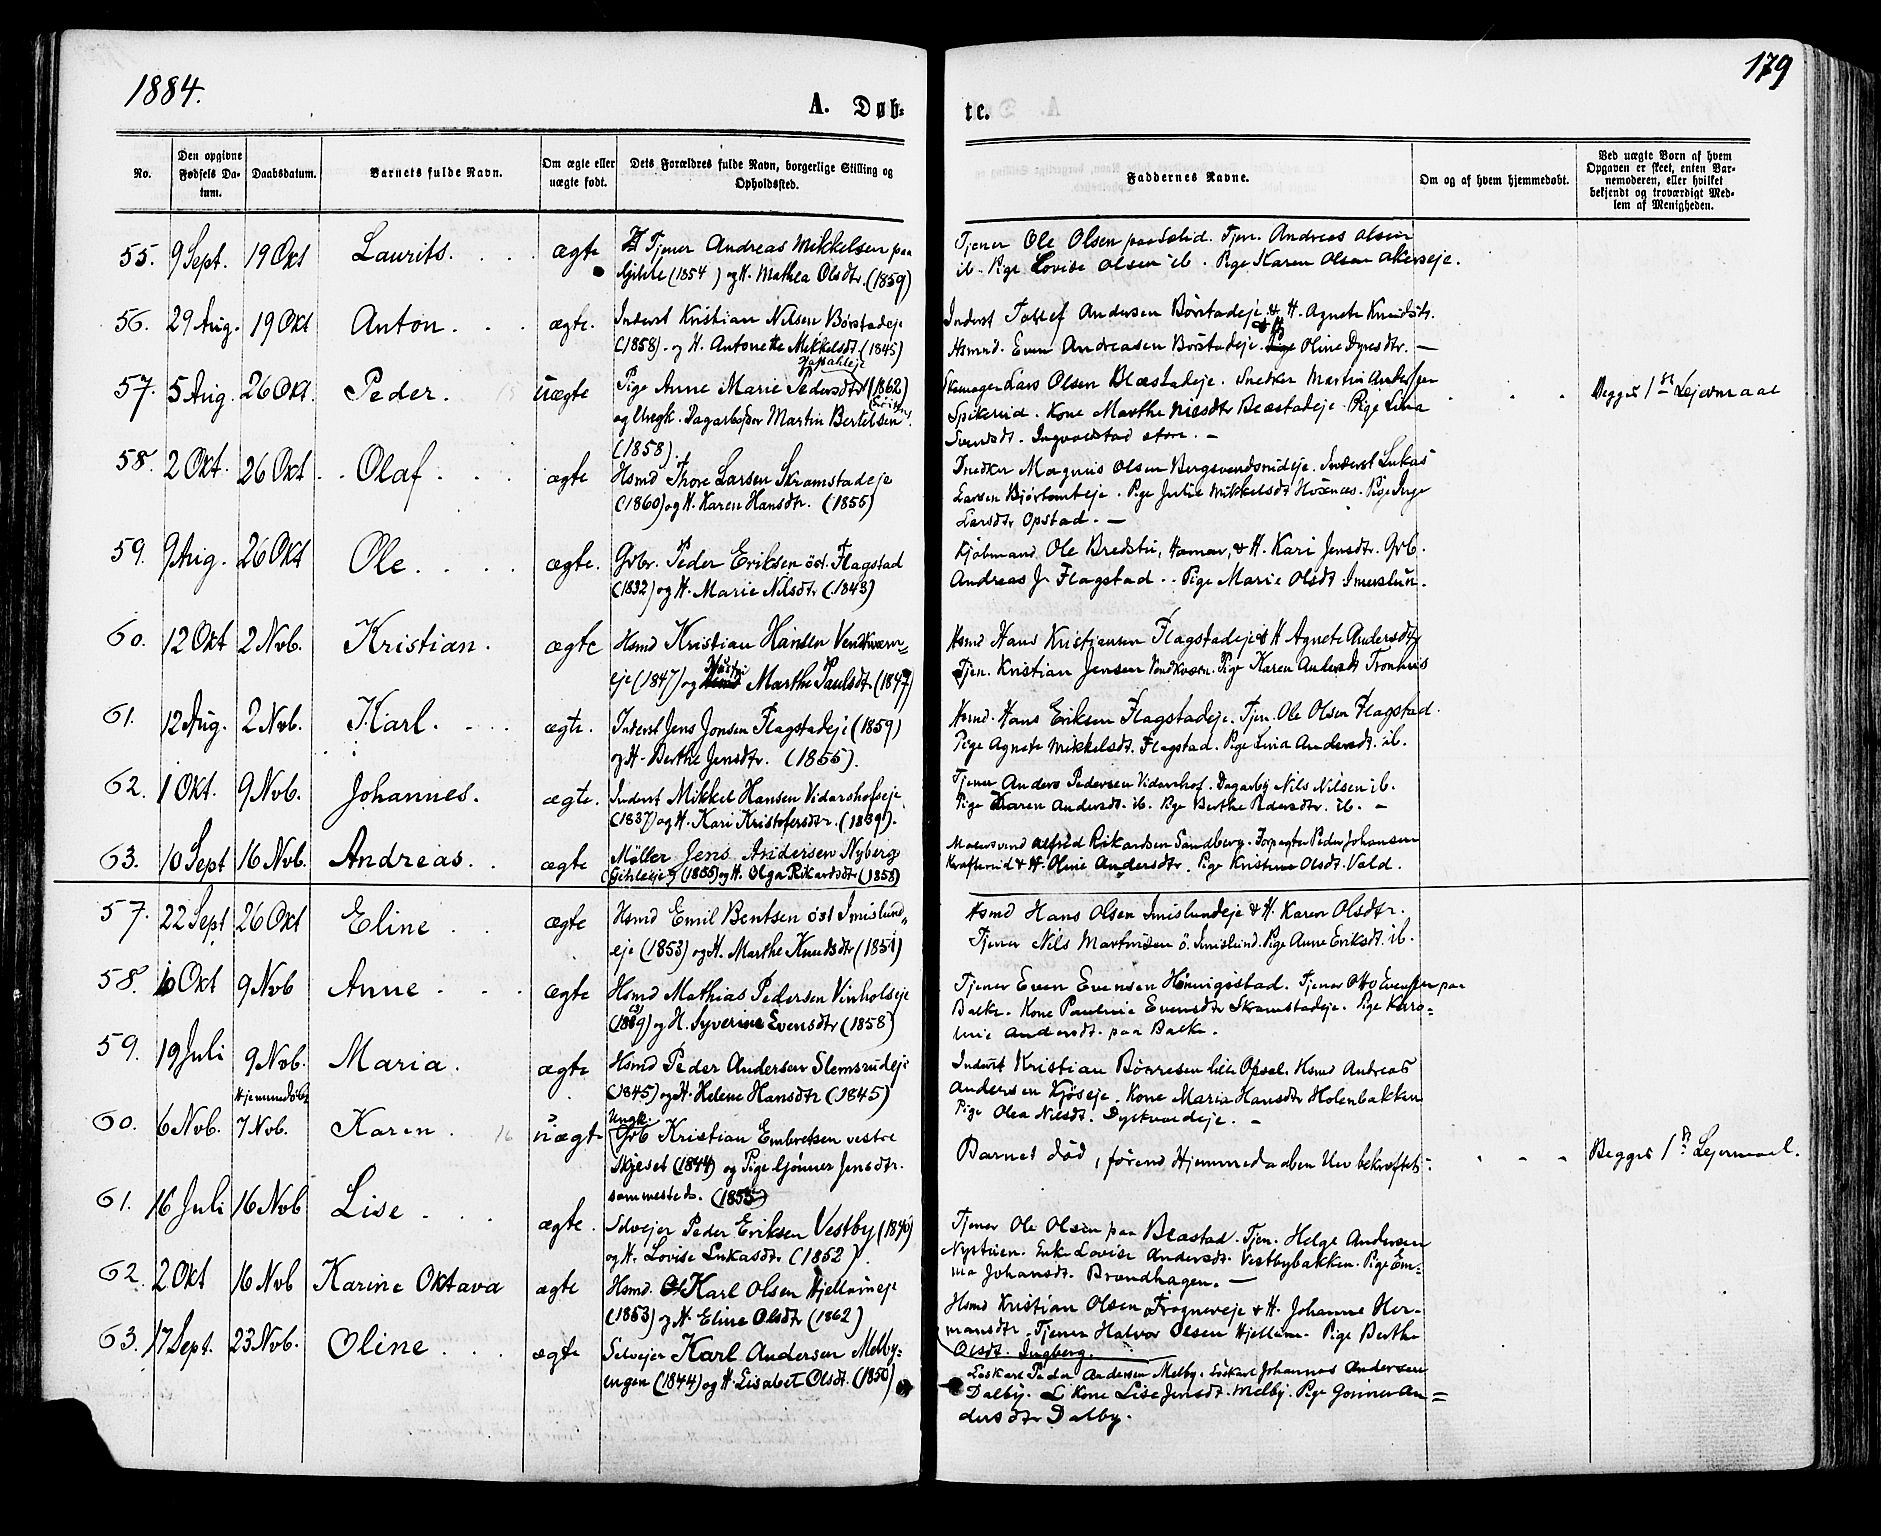 1884.
179
A. Døb-
te.
No.
Den opgivne
Fødsels Da-
tum.
Daabsdatum.
Barnets fulde Navn.
Om ægte eller
uægte født.
Dets Forældres fulde Navn, borgerlige Stilling og
Opholdssted.
Faddernes Navne.
Om og af hvem hjemmedøbt.
Ved uægte Born af hvem
Opgaven er skeet, enten Bar-
nemoderen, eller hvilket
bekjendt og troværdigt Med-
lem af Menigheden.
55. 9 Sept. 19 Okt Laurits. ægte
Tjener Andreas Mikkelsen paa
(1854) og H. Mathea Olsdtr. (1859)
Tjener Ole Olsen paa Tjen. Andreas Olsen
ib. Pige Lovise Olsen ib. Pige Karen Olsen Akerseje.
56. 29 Aug. 19 Okt Anton. ægte.
Inderst Kristian Nilsen Børstadeje
(1858). og H. Antonette Mikkelsdt. (1845)
Inderst Tollef Andersen Børstadeje & H. Agnete Knudsdtr.
& H
Hsmnd. Even Andreasen Børstadeje. Pige Oline Dyresdtr. —
57. 5 Aug. 26 Okt. Peder. 15 uægte
Pige Anne Marie Pedersdtr (1862)
og Ungk. Dagarb. Martin Bertelsen
(1858).
Skomager Lars Olsen Blæstadeje. Snedker Martin Andersen
Spikerud. Kone Marthe Nilsdtr Blæstadeje. Pige Lina
Svendsdt. Ingvoldstad . —
Begges 1ste Lejermaal
58. 2 Okt. 26 Okt. Olaf. ægte
Hsmd Thore Larsen Skramstadeje
(1860) og H. Karen Hansdtr. (1855)
Snedker Magnus Olsen Bergsvendsrudeje. Inderst Lukas
Larsen Bjørtomteje. Pige Julie Mikkelsdt Hosnæs. Pige Inge
Larsdtr Opstad. —
59. 9 Aug. 26 Okt Ole. ægte.
Grbr. Peder Eriksen öst. Flagstad
(1832) og H. Marie Nilsdtr (1843)
Kjöbmand Ole Bredstu, Hamar, & H. Kari Jensdtr. Grb.
Andreas J. Flagstad. Pige Marie Olsdt Imerslun.
60. 12 Okt 2 Nvb. Kristian. ægte
Hsmd Kristian Hansen Vendkværn-
eje (1847) og Hustru Marthe Paulsdt (1847)
Hsmd Hans Kristjansen Flagstadeje & H Agnete Andersdtr
Tjen. Kristian Jensen Vendkværn. Pige Karen Andersdt Tronhus
61. 12 Aug. 2 Nvb. Karl. ægte.
Inderst Jens Jonsen Flagstadeje (1859)
og H. Berthe Jensdtr. (1855).
Hsmd. Hans Eriksen Flagstadeje. Tjen. Ole Olsen Flagstad.
Pige Agnete Mikkelsdt. Flagstad. Pige Lina Andersdt. ib.
62. 1 Okt. 9 Nvb. Johannes. ægte.
Inderst Mikkel Hansen Vidarshofseje
(1837) og H. Kari Kristofersdtr. (1839).
Tjener Anders Pedersen Vidarshof. Dagarb. Nils Nilsen ib.
Pige Karen Andersdt. ib. Pige Berthe Pedersdtr. ib. -
63. 10 Sept 16 Nvb. Andreas. ægte
Møller Jens Andersen Nyberg
(1855) og H. Olga Rikardsdtr (1858)
Alfred Rikardsen Sandberg. Forpagter Peder Johansen
Krafterud & H. Oline Andersdtr. Pige Kristine Olsdt. Vold.
57. 22 Sept 26 Okt Eline. ægte
Hsmd Emil Bentsen öst Imislund-
eje (1853) og H. Marthe Knudsdtr (1851)
Hsmd Hans Olsen Imislundeje & H. Karen Olsdtr.
Tjener Nils Martinsen ö. Imislund. Pige Anne Eriksdt. ib.
58. 10 Okt 9 Nvb Anne. ægte
Hsmd Mathias Pedersen Vinholseje
og H. Syverine Evensdtr (1858)
Tjener Even Evensen Hønnigstad. Tjener Otto Evensen paa
Balke. Kone Pauline Evensdtr Skramstadeje. Pige Karo-
line Andersdt. paa Balke.
59. 19 Juli 9 Nvb. Maria. ægte
Hsmd Peder Andersen Slemsrudeje
(1845) og H. Helene Hansdtr (1845)
Inderst Kristian Börresen lille Opsal. Hsmd Andreas
Andersen Kjöseje. Kone Maria Hansdtr Holenbakken
Pige Olea Nilsdt. Dystvoldeje. —
60. 6 Nvb. Hjemmedöbt 7 Nvb. Karen. 16 uægte
Ungk.
Grb Kristian Embretsen vestre
Skjeset (1844) og Pige Gönner Jensdtr.
sammesteds. (1855)
Barnet död, förend Hjemmedaaben blev bekræftet.
Begges 1ste Lejermaal.
61. 16 Juli 16 Nvb Lise. ægte.
Selvejer Peder Eriksen Vestby (1840)
og H. Lovise Lukasdtr. (1852).
Tjener Ole Olsen paa Blæstad. Tjen. Helge Andersen
Nystuen. Enke Lovise Andersdt. Vestbybakken. Pige Em-
ma Johansdt. Brændhagen. —
62. 2 Okt 16 Nvb Karine Oktava ægte
Hsmd. Karl Olsen Hjellumeje
(1853) og H. Eline Olsdtr (1862)
Hsmd Kristian Olsen Frognereje & H. Johanne Her-
mansdtr. Tjener Halvor Olsen Hjellum. Pige Berthe
Olsdt. Ingberg.
63. 17 Sept. 23 Nvb. Oline. ægte
Selvejer Karl Andersen Melby-
engen (1844) og H. Lisabet Olsdt. (1850)
Peder Andersen Melby. Johannes Andersen
Dalby. Kone Lise Jensdt. Melby. Pige Gönner An-
dersdtr Dalby.